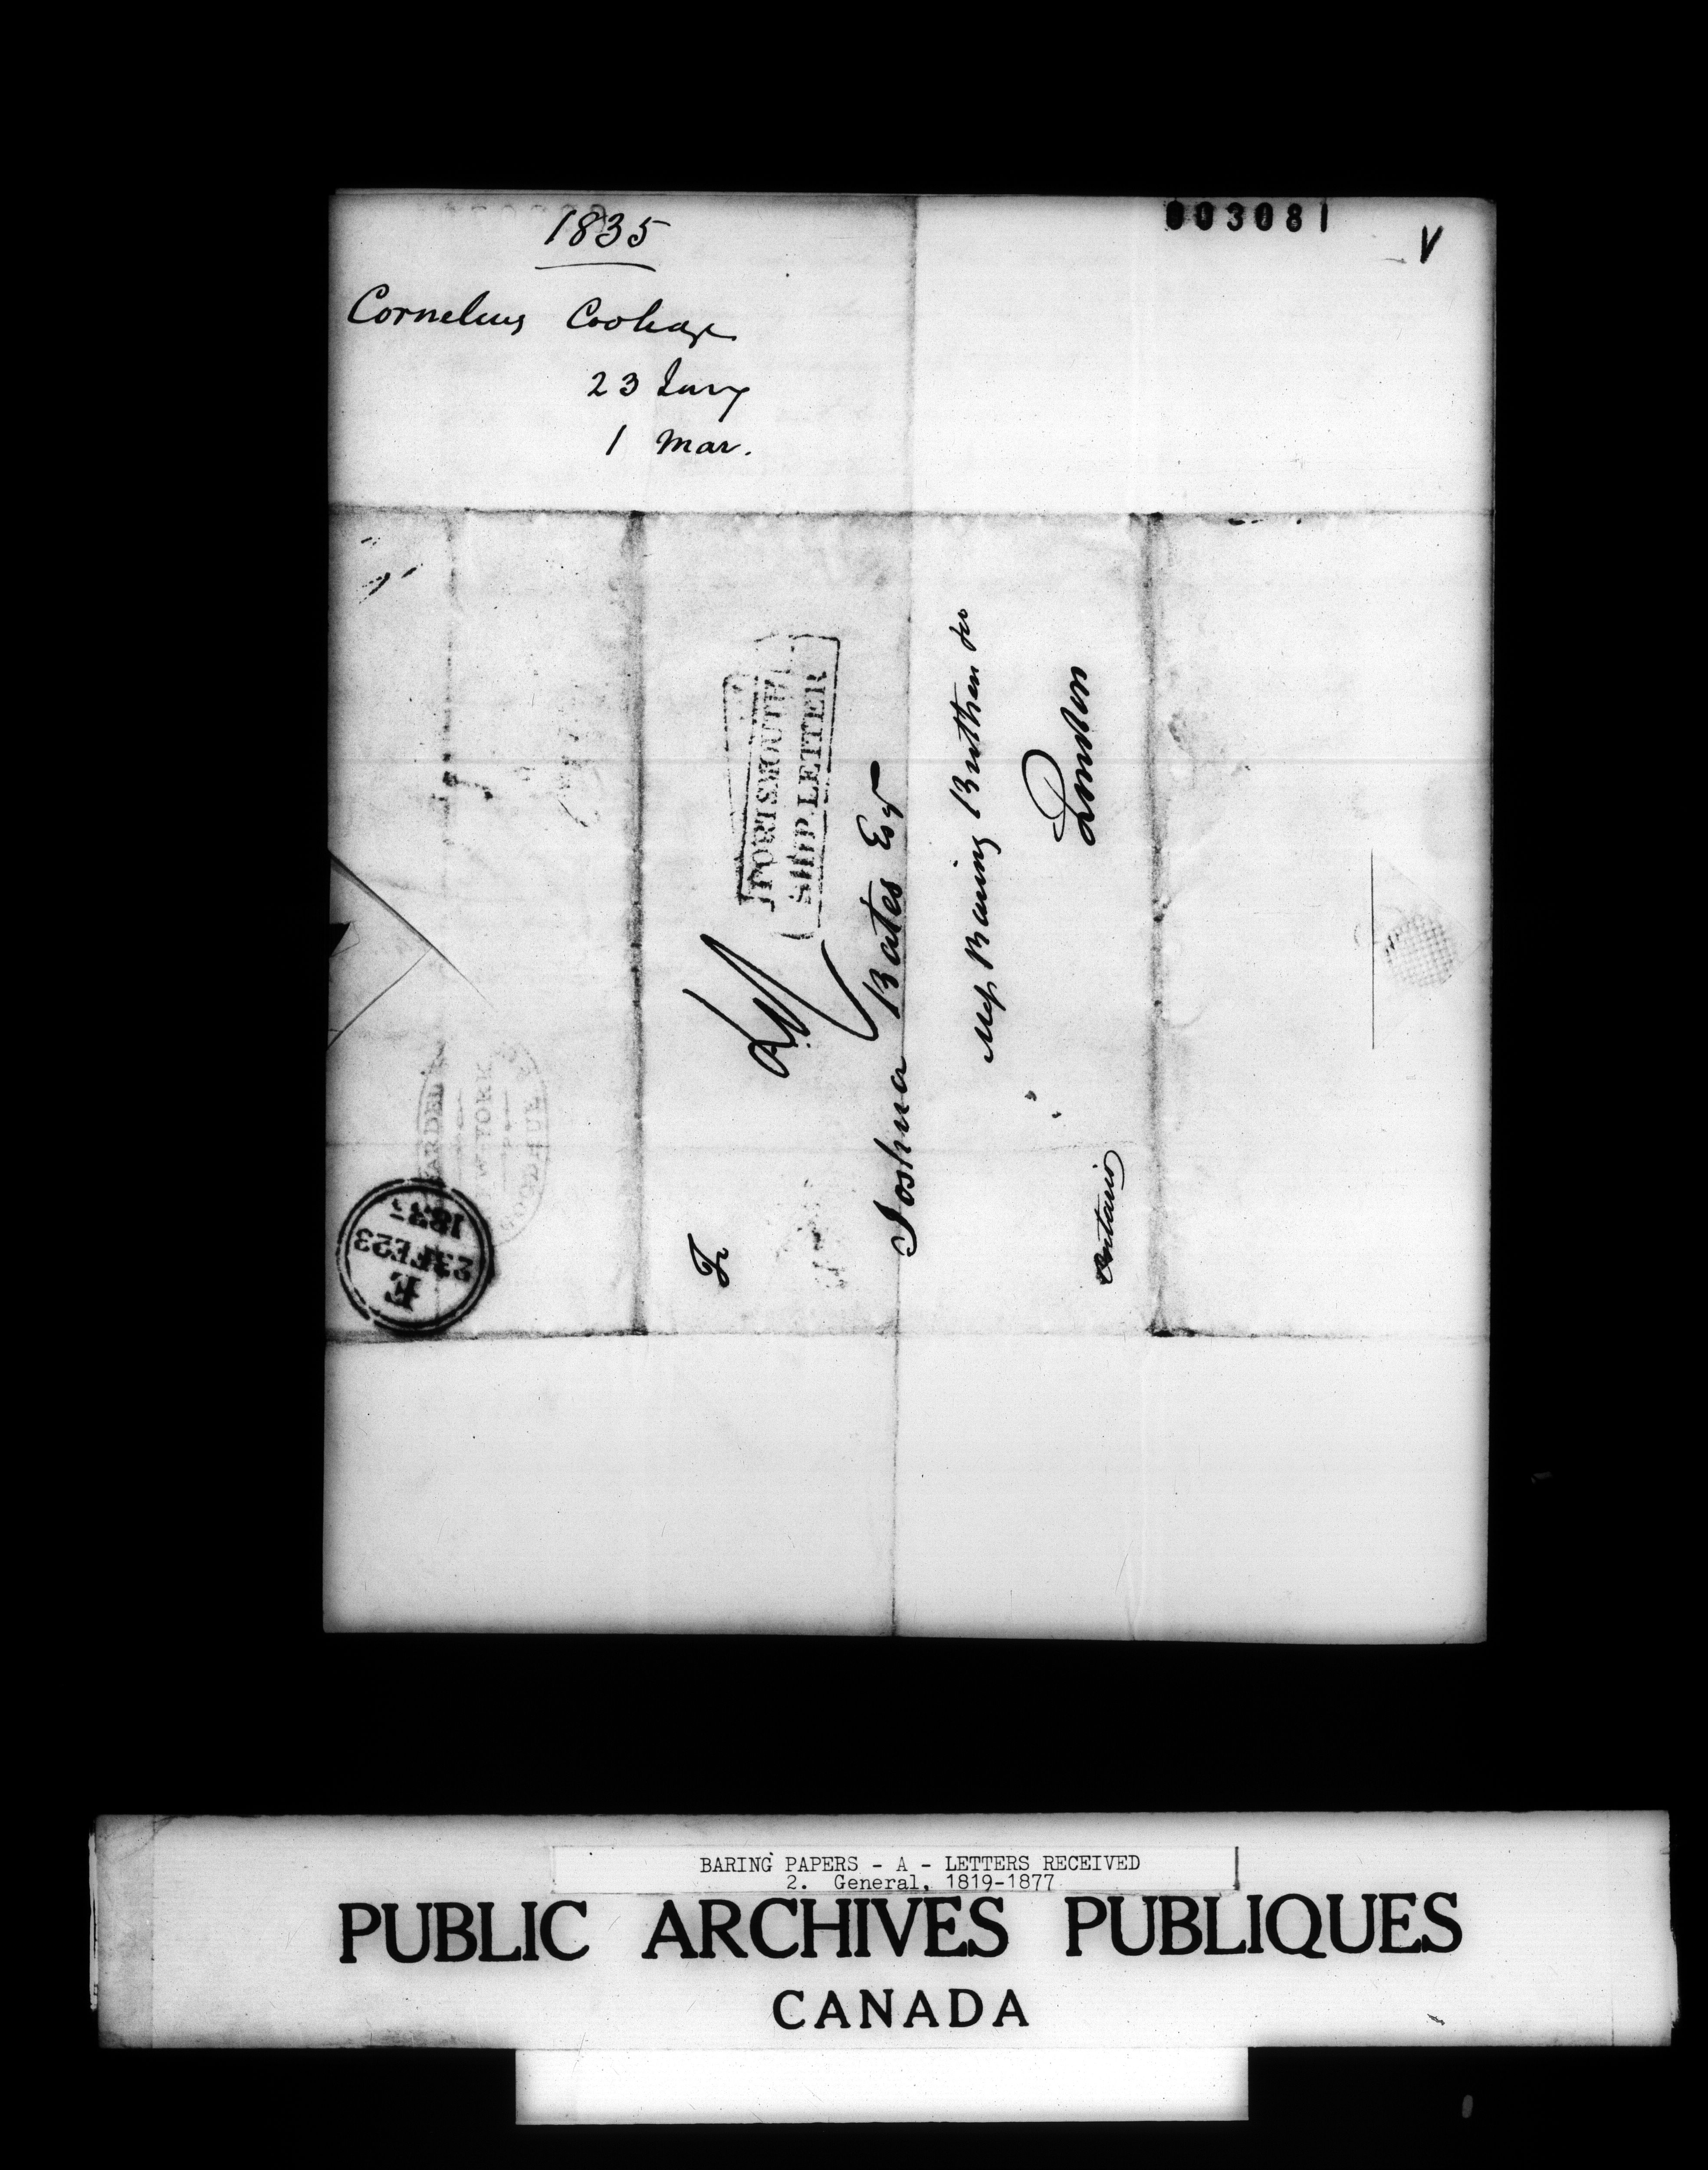 003081
V
1835
Cornelius Coolidge
23 Jany
1 Mar.
PORTSMOUTH
SHIP LETTER
Joshua Bates Esqr
Messrs Baring Brothers & Co
London
Ontario
E
23FE23
1835
BARING PAPERS - A - LETTERS RECEIVED
2. General, 1819-1877
PUBLIC ARCHIVES PUBLIQUES
CANADA